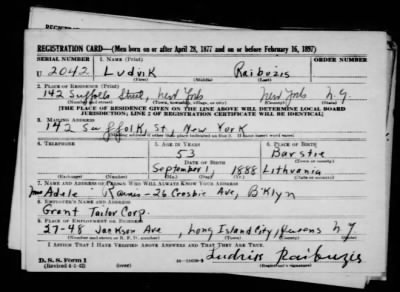 REGISTRATION CARD—(Men born on or after April 28, 1877 and on or before February 16, 1897)
SERIAL NUMBER 1. NAME (Print) ORDER NUMBER
U 2042 Ludvik Raibuzis
(First) (Middle) (Last)
2. PLACE OF RESIDENCE (Print)
142 Suffolk Street, New York New York N.Y.
(Number and street) (Town, township, village, or city) (County) (State)
[THE PLACE OF RESIDENCE GIVEN ON THE LINE ABOVE WILL DETERMINE LOCAL BOARD
JURISDICTION; LINE 2 OF REGISTRATION CERTIFICATE WILL BE IDENTICAL]
3. MAILING ADDRESS
142 Suffolk, St, New York
[Mailing address if other than place indicated on line 2. If same insert word same]
4. TELEPHONE 5. AGE IN YEARS 6. PLACE OF BIRTH
53 Barstie
DATE OF BIRTH (Town or county)
September 1, 1888 Lithuania
(Exchange) (Number) (Mo.) (Day) (Yr.) (State or country)
7. NAME AND ADDRESS OF PERSON WHO WILL ALWAYS KNOW YOUR ADDRESS
Adele 26 Crosbie Ave, B'klyn
8. EMPLOYER'S NAME AND ADDRESS
Grant Tailor Corp.
9. PLACE OF EMPLOYMENT OR BUSINESS
27-48 Jackson Ave, Long Island City, Queens N.Y.
(Number and street or R. F. D. number) (Town) (County) (State)
I AFFIRM THAT I HAVE VERIFIED ABOVE ANSWERS AND THAT THEY ARE TRUE.
D. S. S. Form 1
(Revised 4-1-42) (Registrant's signature)